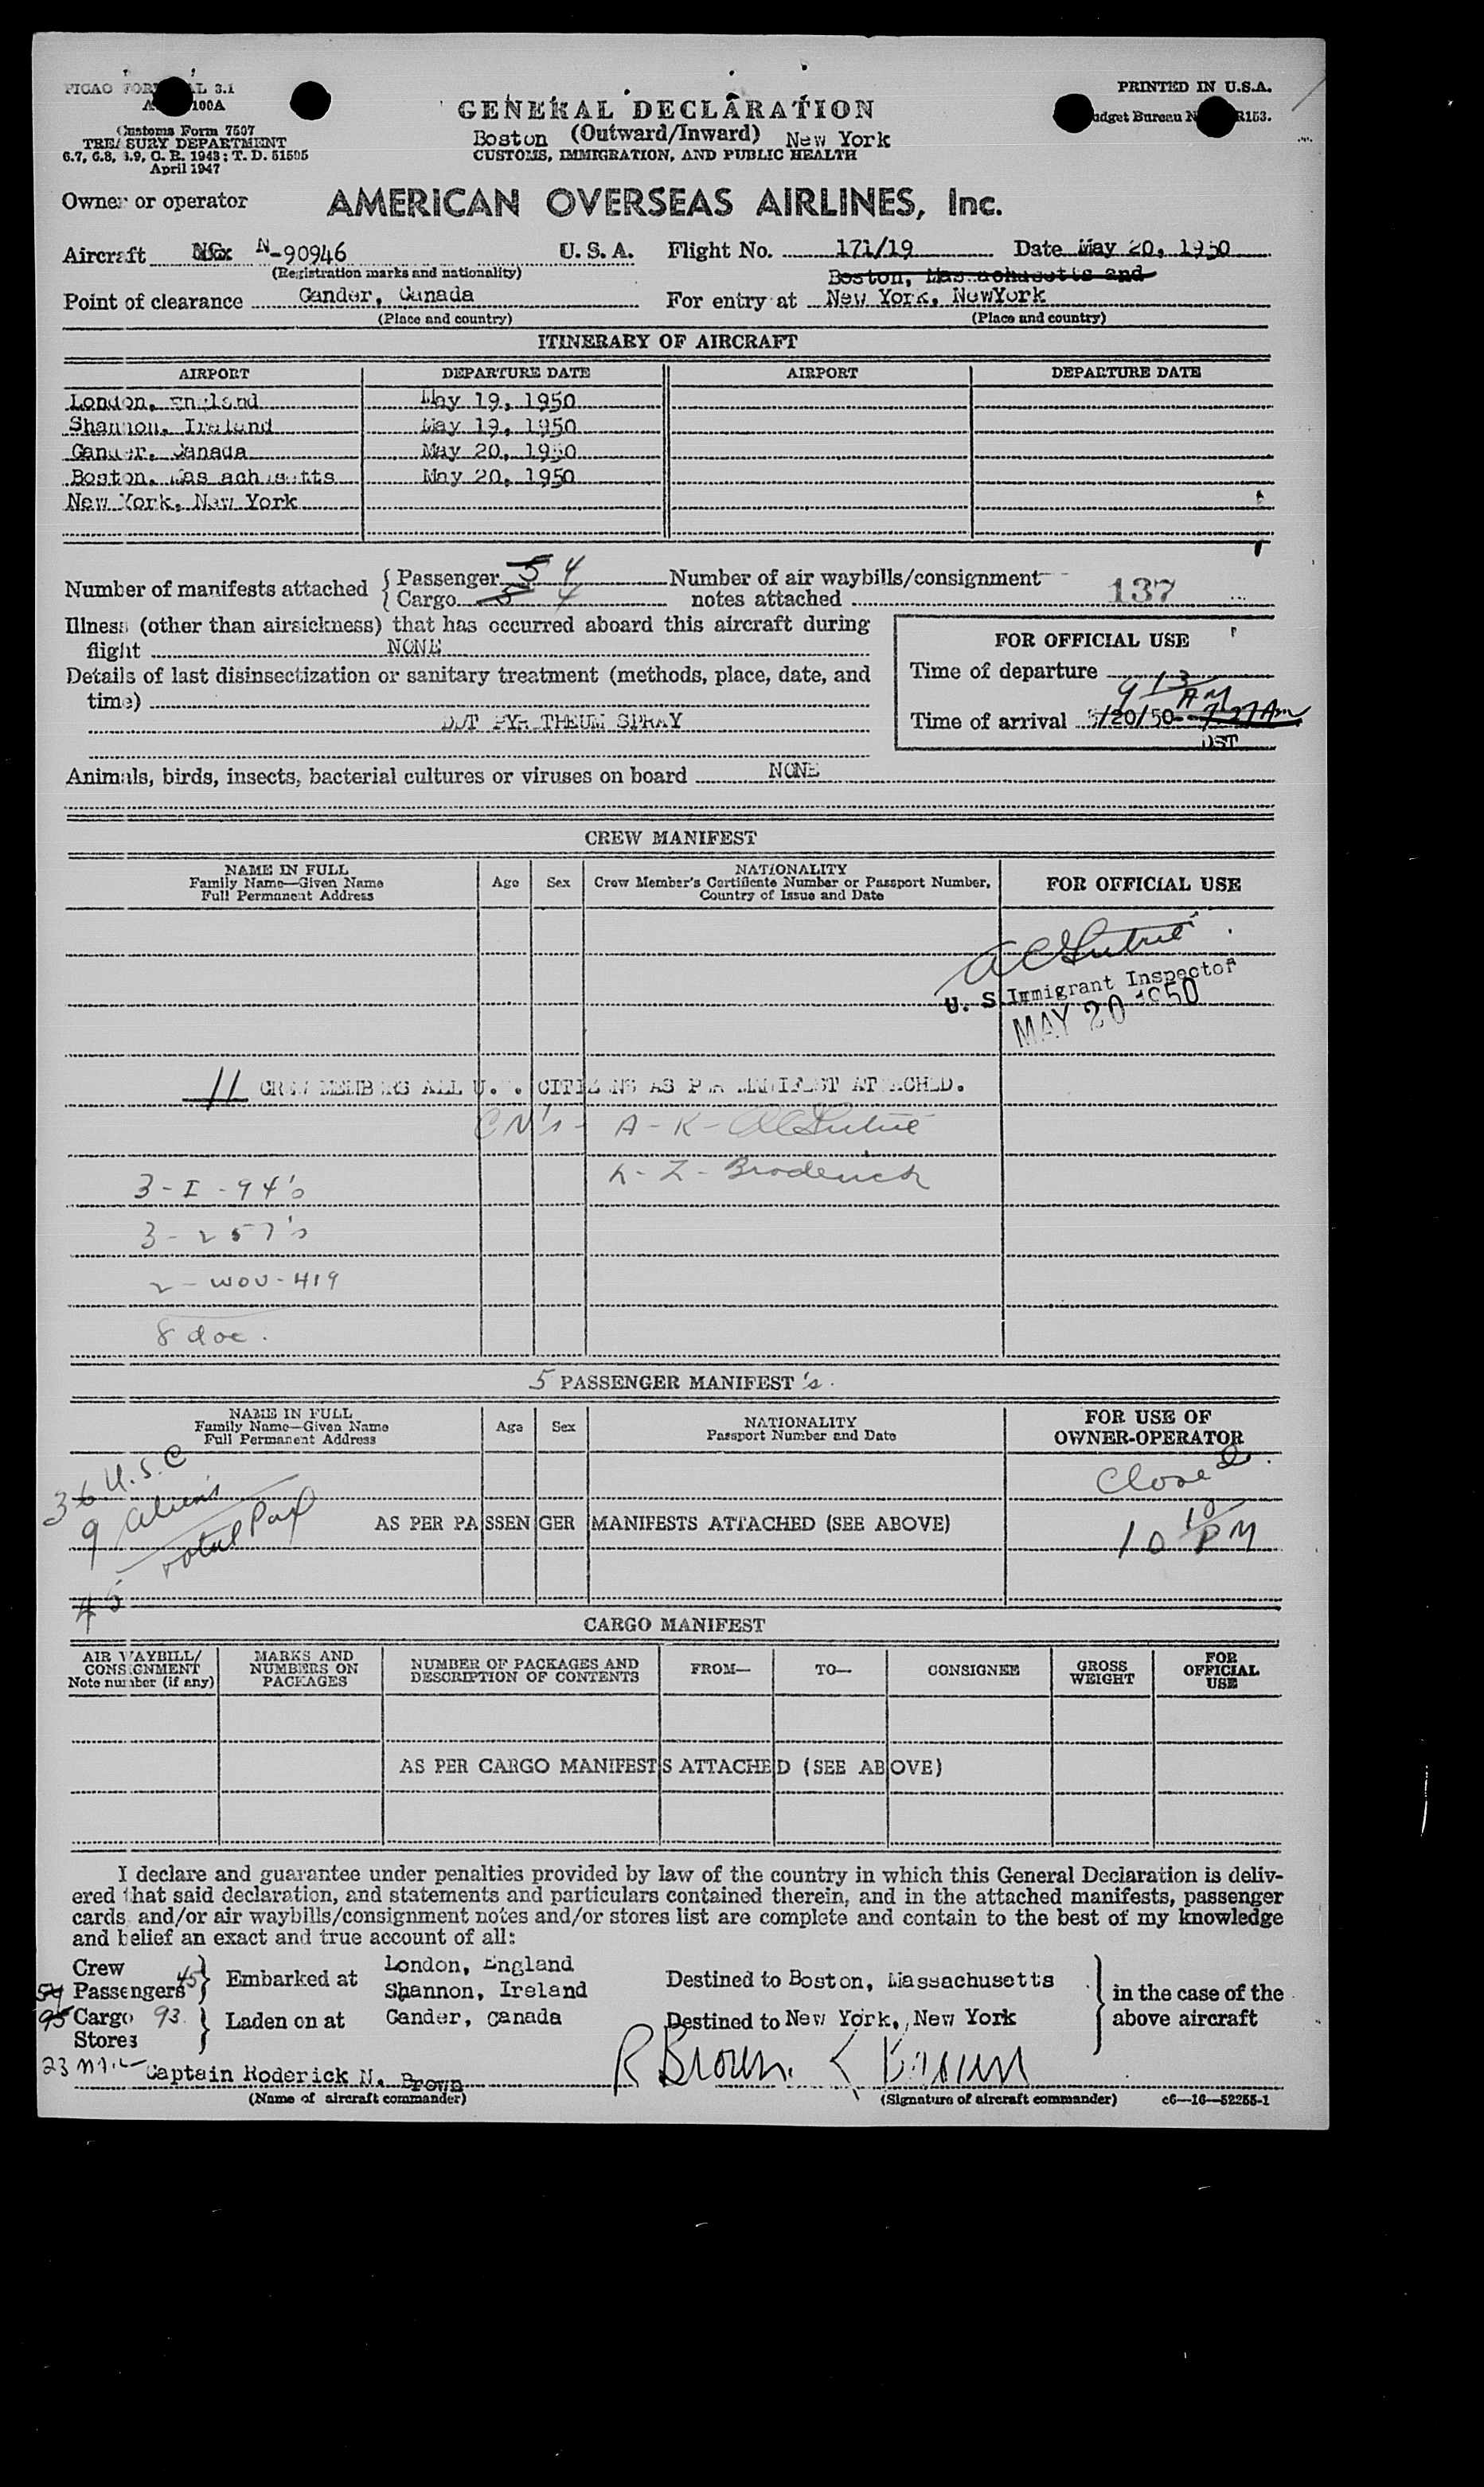 PRINTED IN U.S.A.
100A
Customs Form 7507
TREASURY DEPARTMENT
6.7, 6.8, 6.9, C. R. 1943; T. D. 51595
April 1947
GENERAL DECLARATION
Boston (Outward/Inward) New York
CUSTOMS, IMMIGRATION, AND PUBLIC HEALTH
Budget Bureau R153.
Owner or operator AMERICAN OVERSEAS AIRLINES, Inc.
Aircraft N-90946 U. S. A. Flight No. 171/19 Date May 20, 1950
(Registration marks and nationality)
Boston, Massachusetts and
Point of clearance Gander, Canada For entry at New York, NewYork
(Place and country) (Place and country)
ITINERARY OF AIRCRAFT
AIRPORT DEPARTURE DATE AIRPORT DEPARTURE DATE
London, England May 19, 1950
Shannon, Ireland May 19, 1950
Gander, Canada May 20, 1950
Boston, Massachusetts May 20, 1950
New York, New York
Number of manifests attached { Passenger 5 4 Number of air waybills/consignment
Cargo 5 4 notes attached 137
Illness (other than airsickness) that has occurred aboard this aircraft during
flight NONE
Details of last disinsectization or sanitary treatment (methods, place, date, and
time)
DDT PYR THEUM SPRAY
FOR OFFICIAL USE
Time of departure
9 13 AM
Time of arrival 5/20/50- 7 27 Am
DST
Animals, birds, insects, bacterial cultures or viruses on board NONE
CREW MANIFEST
NAME IN FULL
Family Name—Given Name
Full Permanent Address
Age Sex
NATIONALITY
Crew Member's Certificate Number or Passport Number,
Country of Issue and Date
FOR OFFICIAL USE
U. S Immigrant Inspector
MAY 20 1950
11 CREW MEMBERS ALL U.S. CITIZENS AS PER MANIFEST ATTACHED.
CN's - A - K -
L - Z - Broderick
3 - I - 94's
3 - 257's
2 - WOU - 419
8 doc.
5 PASSENGER MANIFEST's.
NAME IN FULL
Family Name—Given Name
Full Permanent Address
Age Sex
NATIONALITY
Passport Number and Date
FOR USE OF
OWNER-OPERATOR
36 U.S.C
9 Aliens
45 total Pax
Closed.
10 10 PM
AS PER PASSENGER MANIFESTS ATTACHED (SEE ABOVE)
CARGO MANIFEST
AIR WAYBILL/
CONSIGNMENT
Note number (if any)
MARKS AND
NUMBERS ON
PACKAGES
NUMBER OF PACKAGES AND
DESCRIPTION OF CONTENTS
FROM— TO— CONSIGNEE
GROSS
WEIGHT
FOR
OFFICIAL
USE
AS PER CARGO MANIFESTS ATTACHED (SEE ABOVE)
I declare and guarantee under penalties provided by law of the country in which this General Declaration is deliv-
ered that said declaration, and statements and particulars contained therein, and in the attached manifests, passenger
cards and/or air waybills/consignment notes and/or stores list are complete and contain to the best of my knowledge
and belief an exact and true account of all:
Crew London, England
54 Passengers 45 } Embarked at Shannon, Ireland Destined to Boston, Massachusetts } in the case of the
95 Cargo 93 } Laden on at Gander, Canada Destined to New York, New York above aircraft
Stores
23 Captain Roderick N. Brown R Brown
(Name of aircraft commander) (Signature of aircraft commander) c6—16—52255-1